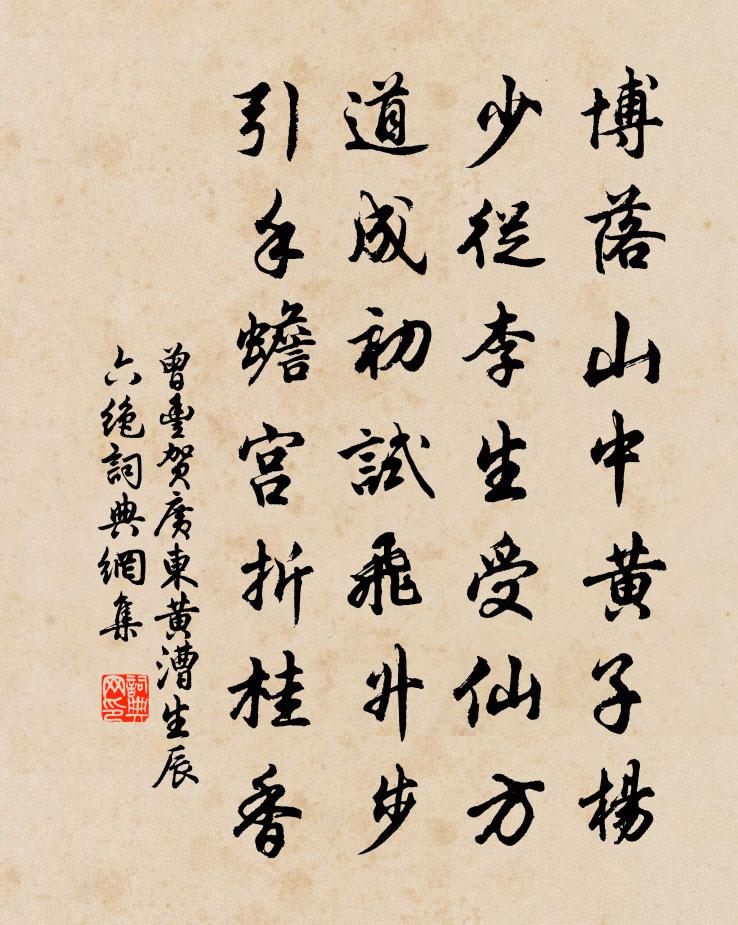 博落山中黄子楊
少從李生受仙方
道成初試飛升步
引手蟾宫折桂香
曾豐贺廣東黄漕生辰
六絶詞典網集
詞典网印